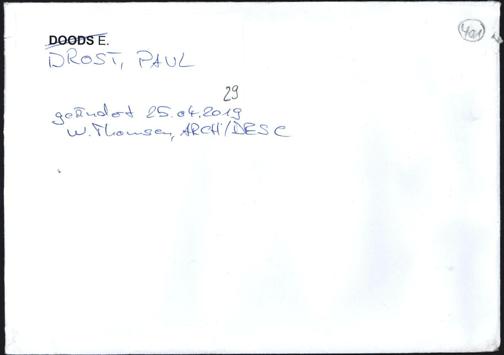 401
DOODS E.
DROST, PAUL
29
geändert 25.04.2019
W. Thomsen, ARCH/DESC